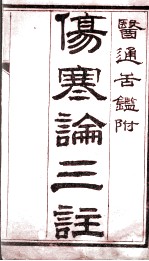 醫通舌鑑附
傷寒論三註